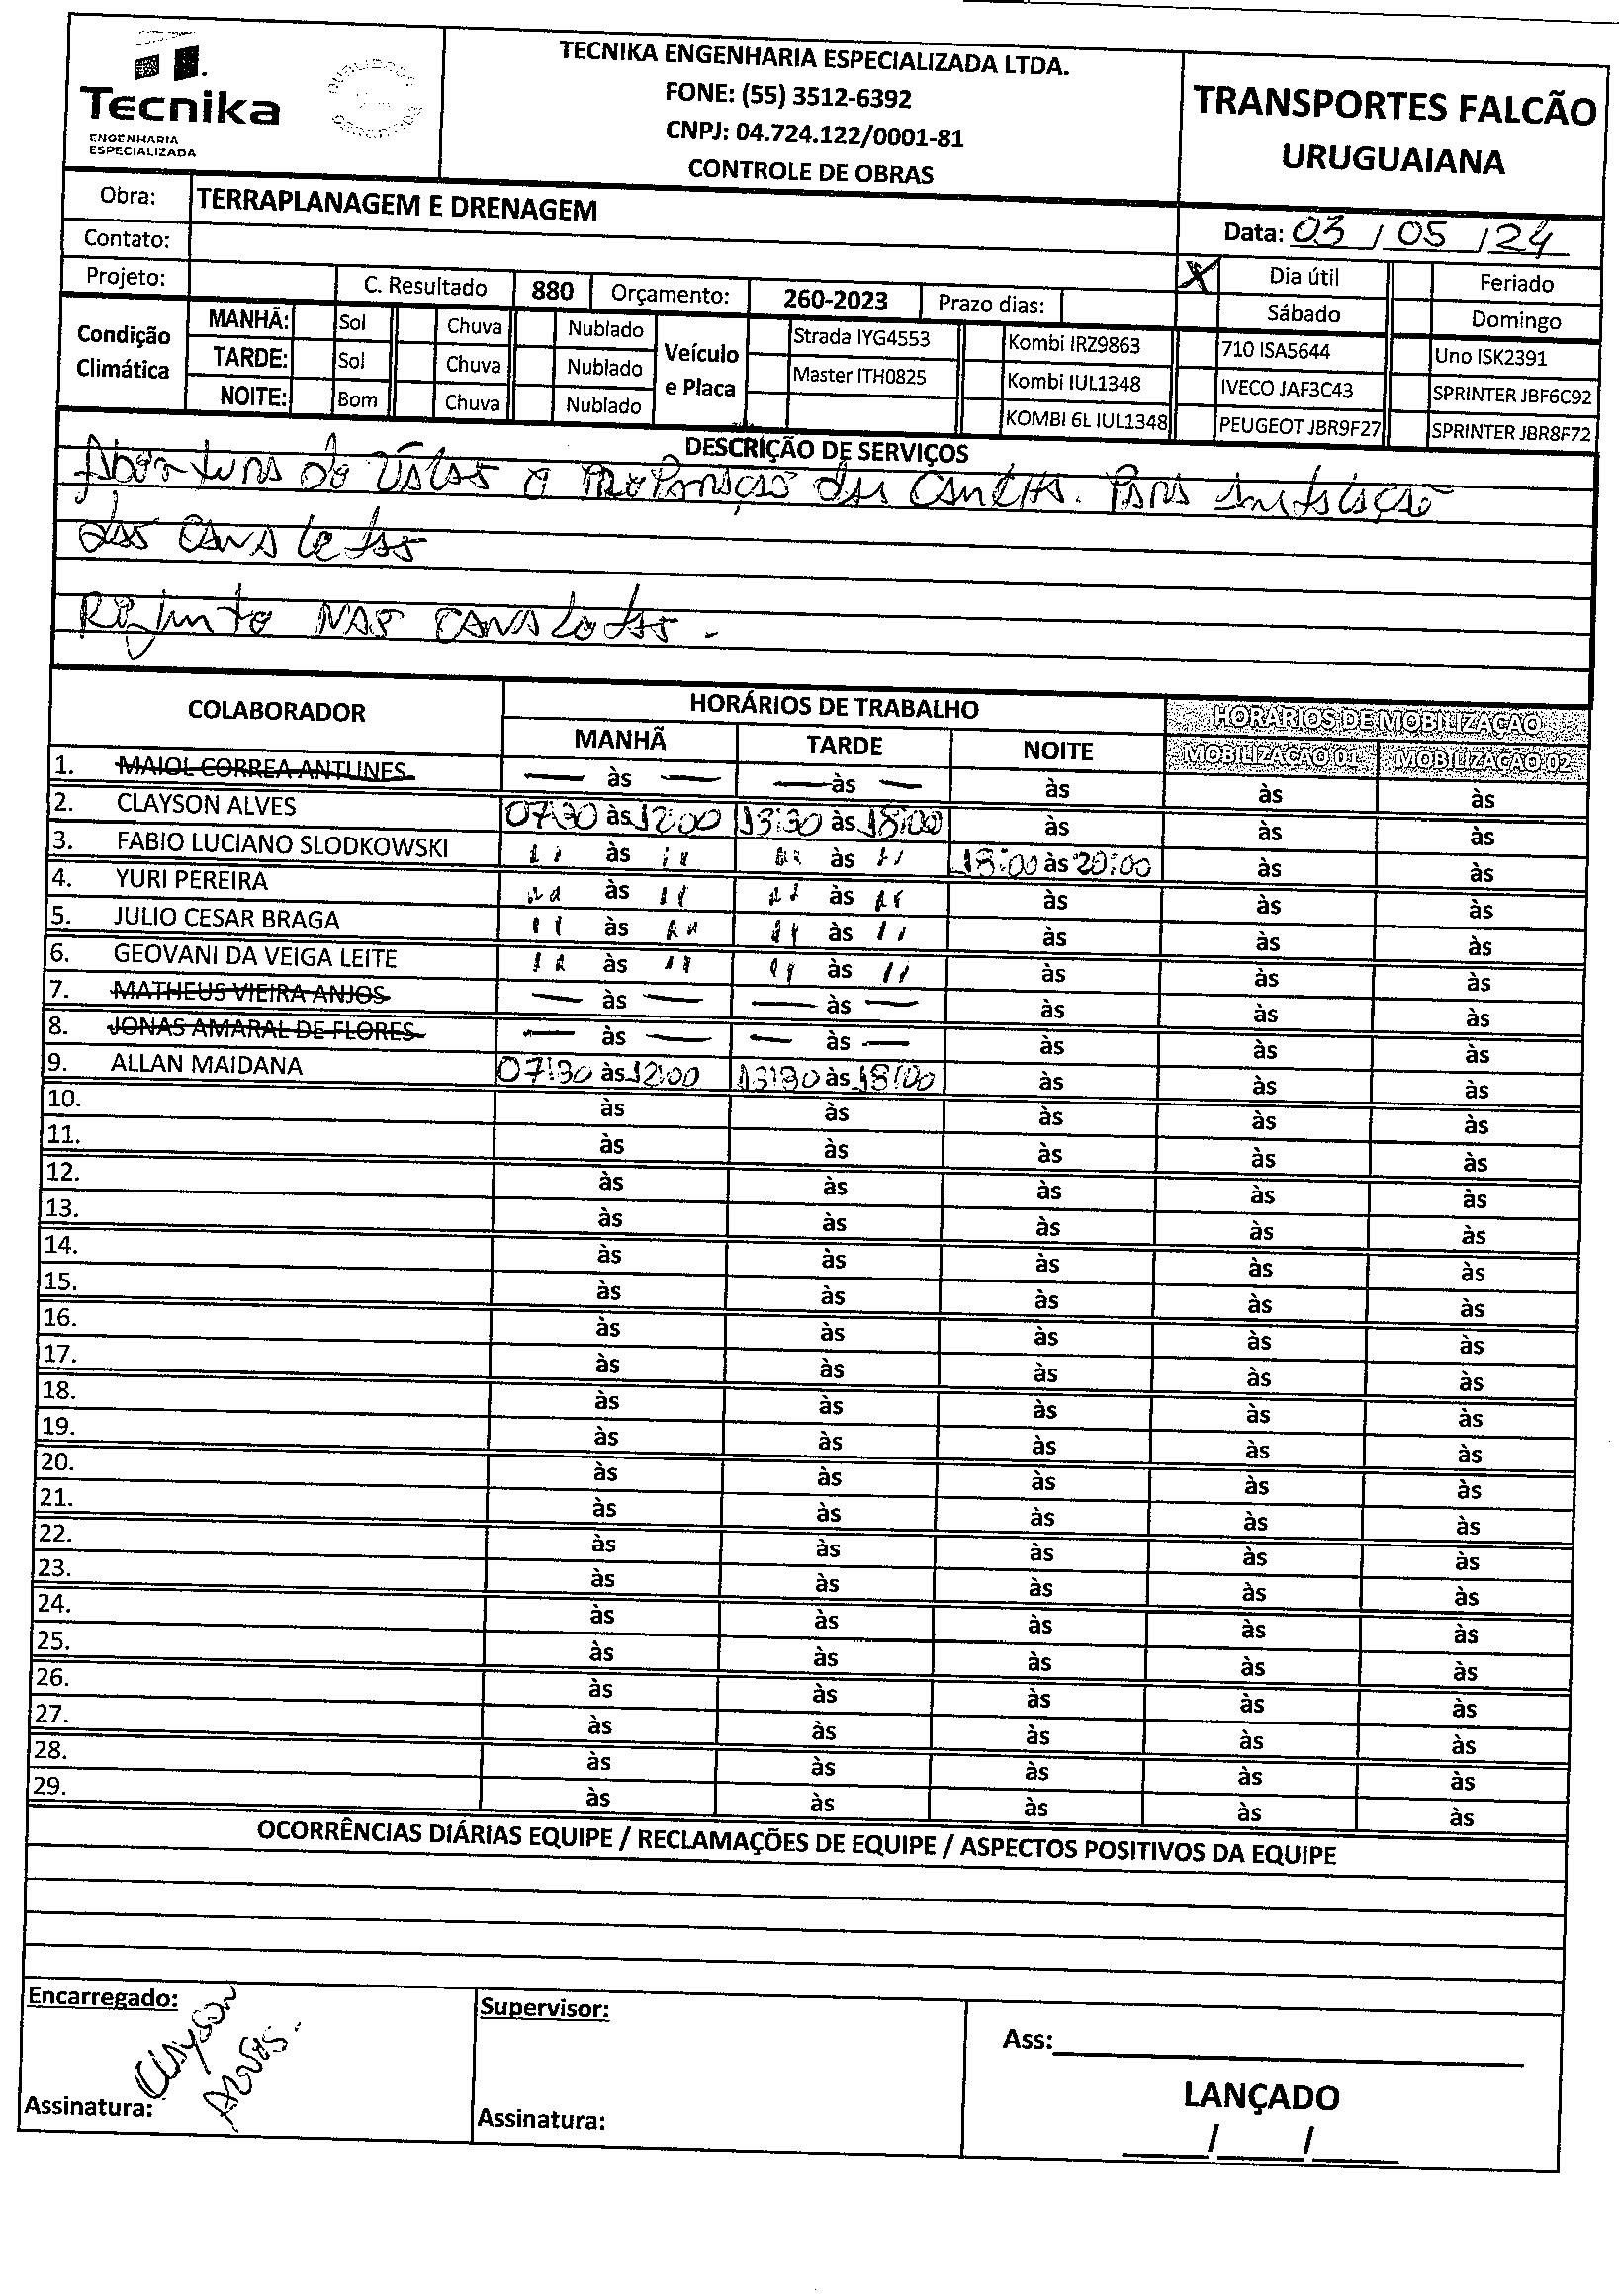 Tecnika
ENGENHARIA
ESPECIALIZADA
TECNIKA ENGENHARIA ESPECIALIZADA LTDA.
FONE: (55) 3512-6392
CNPJ: 04.724.122/0001-81
CONTROLE DE OBRAS
TRANSPORTES FALCÃO
URUGUAIANA
Obra: TERRAPLANAGEM E DRENAGEM
Data: 03 / 05 / 24
Contato:
Projeto: C. Resultado 880 Orçamento: 260-2023 Prazo dias: X Dia útil Feriado
Sábado Domingo
Condição Climática
MANHÃ: Sol Chuva Nublado
TARDE: Sol Chuva Nublado
NOITE: Bom Chuva Nublado
Veículo e Placa
Strada IYG4553 Kombi IRZ9863 710 ISA5644 Uno ISK2391
Master ITH0825 Kombi IUL1348 IVECO JAF3C43 SPRINTER JBF6C92
KOMBI 6L IUL1348 PEUGEOT JBR9F27 SPRINTER JBR8F72
DESCRIÇÃO DE SERVIÇOS
Abertura de Valas e preparação das Canchas. Para instalação
das Canaletas
Rejunto NAS CANALetas.
COLABORADOR HORÁRIOS DE TRABALHO HORÁRIOS DE MOBILIZAÇÃO
MANHÃ TARDE NOITE MOBILIZAÇÃO 01 MOBILIZAÇÃO 02
1. MAIOL CORREA ANTUNES — às — — às — às às às
2. CLAYSON ALVES 07:30 às 12:00 13:30 às 18:00 às às às
3. FABIO LUCIANO SLODKOWSKI 11 às 11 11 às 11 18:00 às 20:00 às às
4. YURI PEREIRA 11 às 11 11 às 11 às às às
5. JULIO CESAR BRAGA 11 às 11 11 às 11 às às às
6. GEOVANI DA VEIGA LEITE 11 às 11 11 às 11 às às às
7. MATHEUS VIEIRA ANJOS — às — — às — às às às
8. JONAS AMARAL DE FLORES — às — — às — às às às
9. ALLAN MAIDANA 07:30 às 12:00 13:30 às 18:00 às às às
10. às às às às às
11. às às às às às
12. às às às às às
13. às às às às às
14. às às às às às
15. às às às às às
16. às às às às às
17. às às às às às
18. às às às às às
19. às às às às às
20. às às às às às
21. às às às às às
22. às às às às às
23. às às às às às
24. às às às às às
25. às às às às às
26. às às às às às
27. às às às às às
28. às às às às às
29. às às às às às
OCORRÊNCIAS DIÁRIAS EQUIPE / RECLAMAÇÕES DE EQUIPE / ASPECTOS POSITIVOS DA EQUIPE
Encarregado:
Clayson
Alves.
Assinatura:
Supervisor:
Assinatura:
Ass:
LANÇADO
/ /